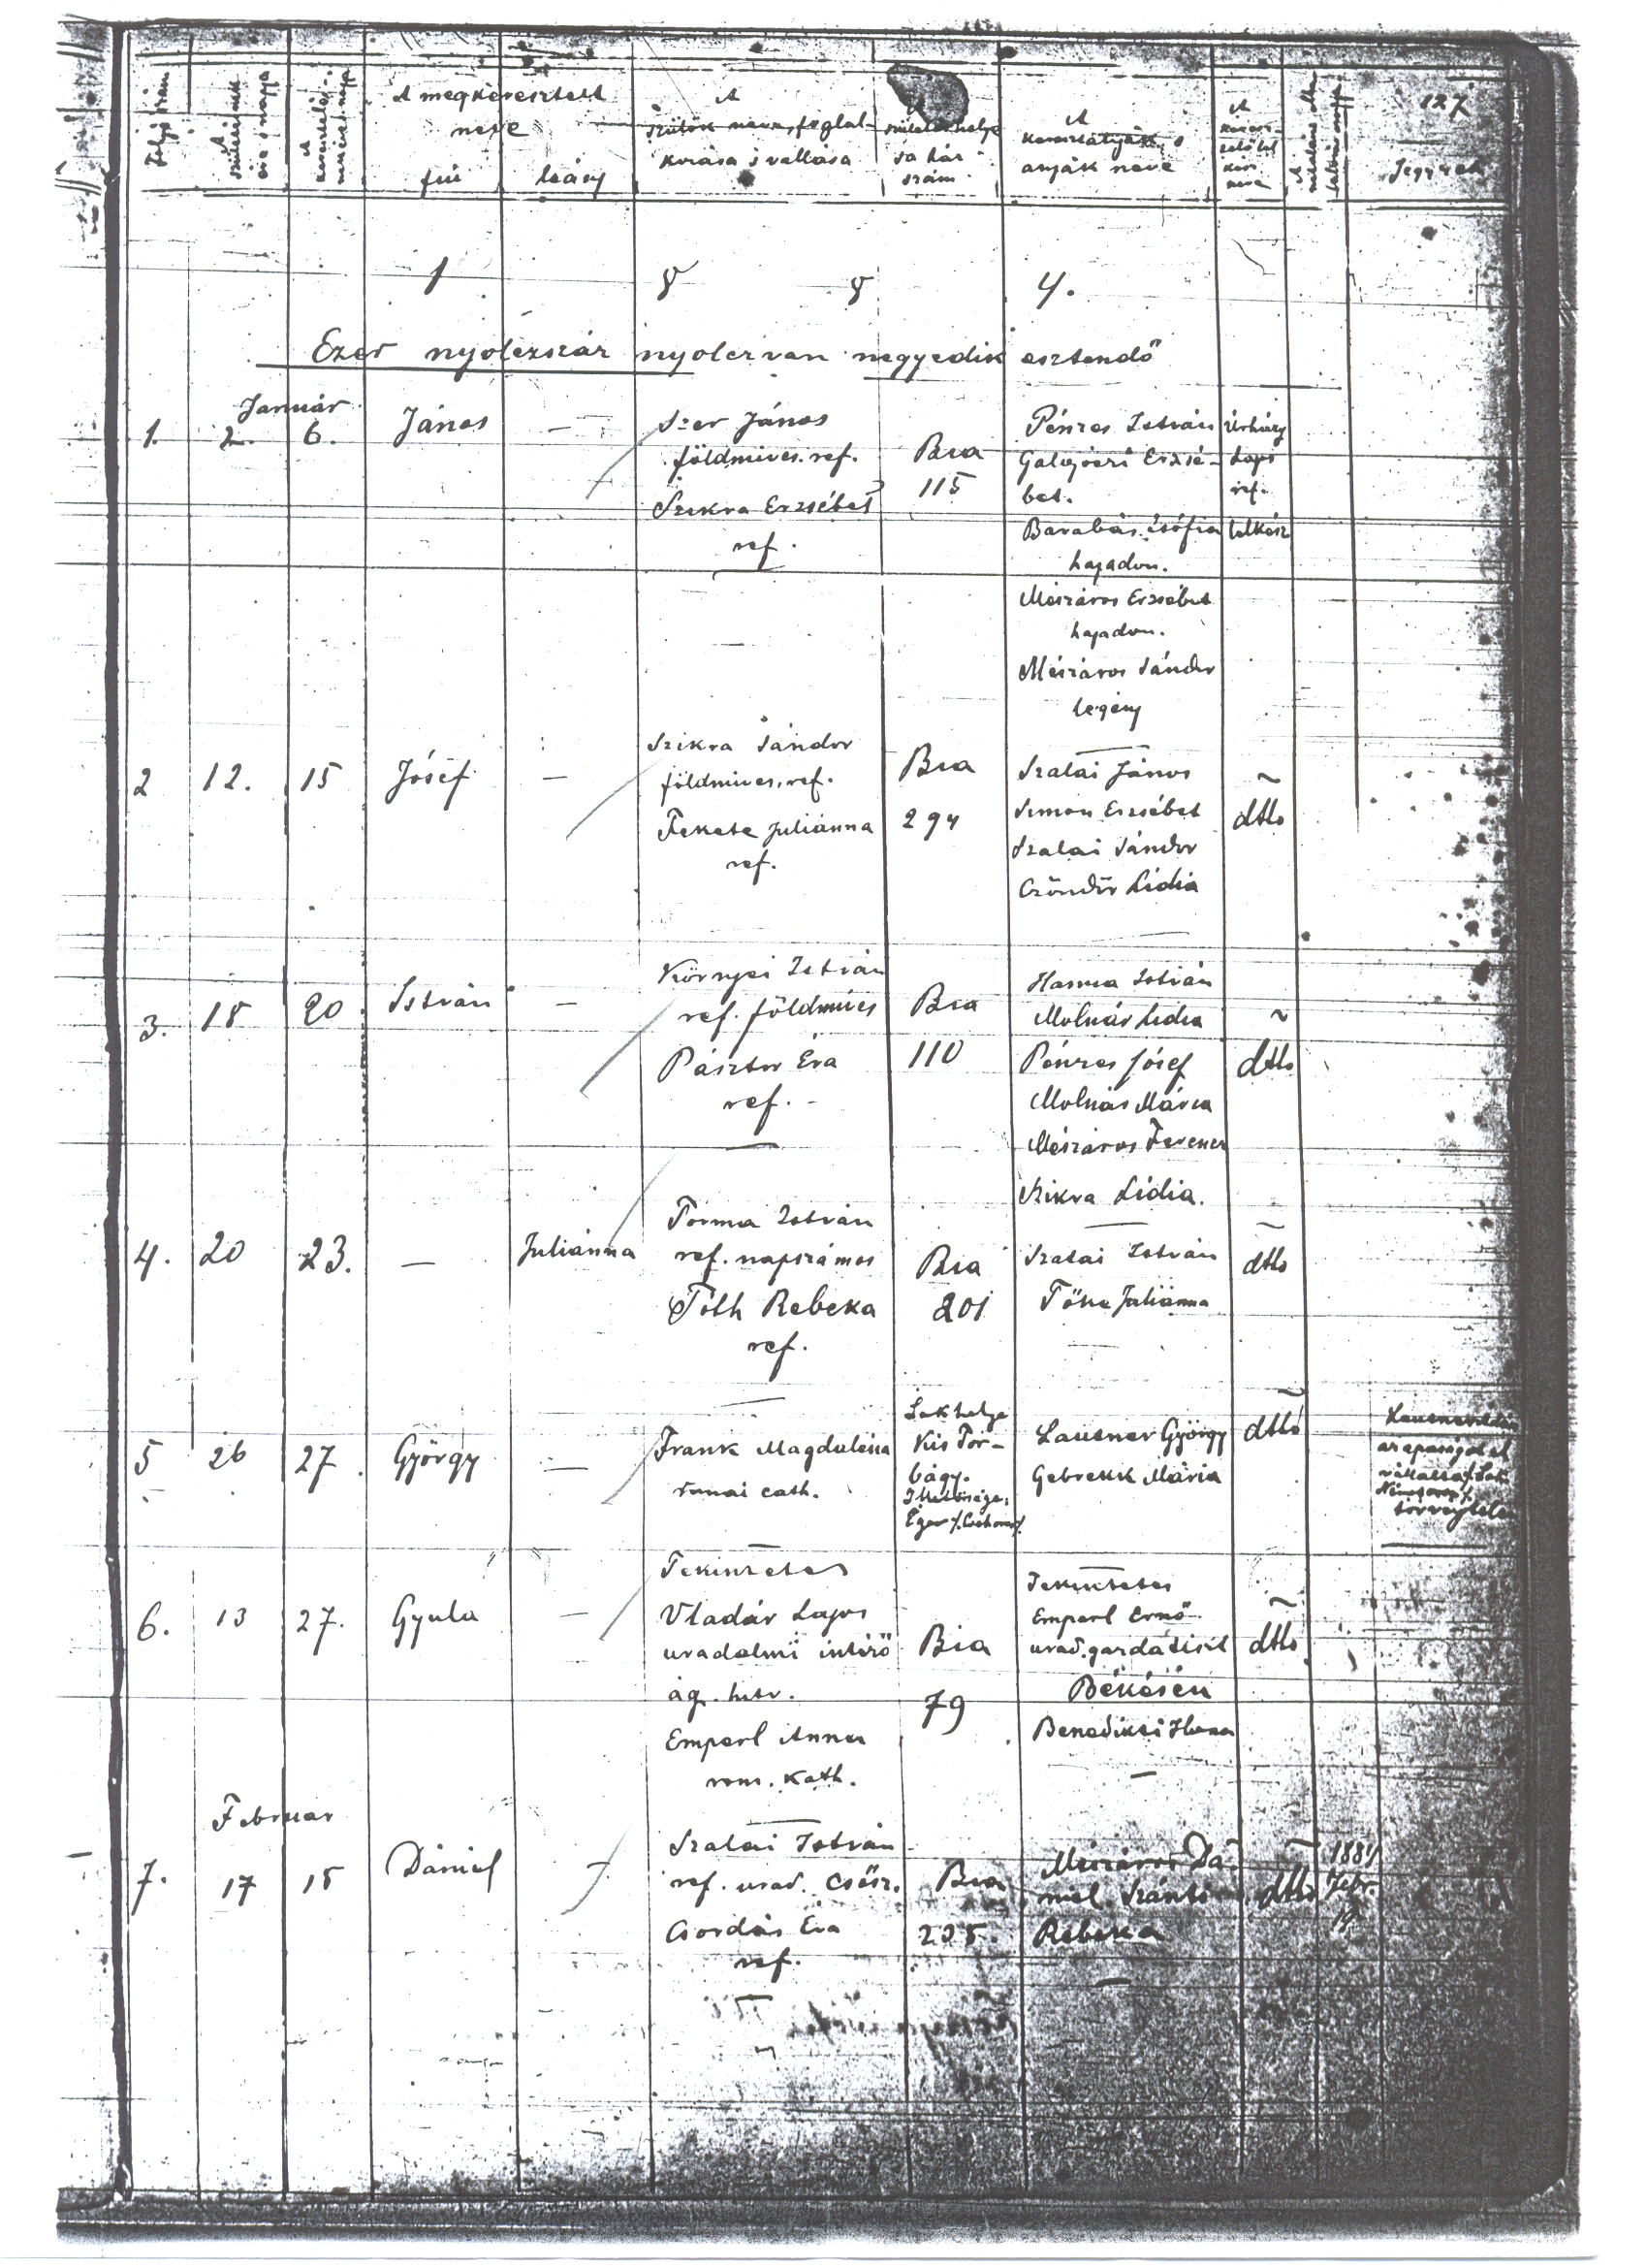 127
A megkeresztelt
neve
fiú
leány
A
szülők neve, foglal-
kozása s vallása
A
születés helye
s a ház
szám
A
keresztatyák s
anyák neve
A
keresz-
telő lel
kész
neve
Jegyzet
1 8 8 4.
Ezer nyolczszáz nyolczvan negyedik esztendő
Január
1. 2. 6. János —
Szer János
földmives. ref.
Szikra Erzsébet
ref.
Bia
115
Pénzes István
Galgóczi Erzsé-
bet.
Barabás Zsófia
hajadon.
Mészáros Erzsébet
hajadon.
Mészáros Sándor
legény
Lajos
ref.
lelkész
2 12. 15 József —
Szikra Sándor
földmives, ref.
Fekete Juliánna
ref.
Bia
294
Szalai János
Simon Erzsébet
Szalai Sándor
Czöndör Lidia
dtto
3. 18 20 István —
Környei István
ref. földmives
Pásztor Éva
ref.
Bia
110
Hanna István
Molnár Lidia
Pénzes József
Molnár Mária
Mészáros Ferencz
Szikra Lidia.
dtto
4. 20 23. — Juliánna
Torma István
ref. napszámos
Tóth Rebeka
ref.
Bia
201
Szalai István
Tőke Juliánna
dtto
5 26 27. György —
Frank Magdolna
római cath.
Lakhelye
Kis Tor-
bágy.
Illetősége:
Eger
Lausner György
Mária
dtto
az apaságot el
6. 13 27. Gyula —
Tekintetes
Vladár Lajos
uradalmi intéző
ág. hitv.
Emperl Anna
rom. kath.
Bia
79
Tekintetes
Emperl Ernő
urad. gazdatiszt
Békésen
Benedikti Ilona
dtto
Február
7. 17 18 Dániel
Szalai István
ref. urad. csősz.
Csordás Éva
ref.
Bia
Mészáros Dá-
niel Szántó
Rebeka
dtto
1884
Febr.